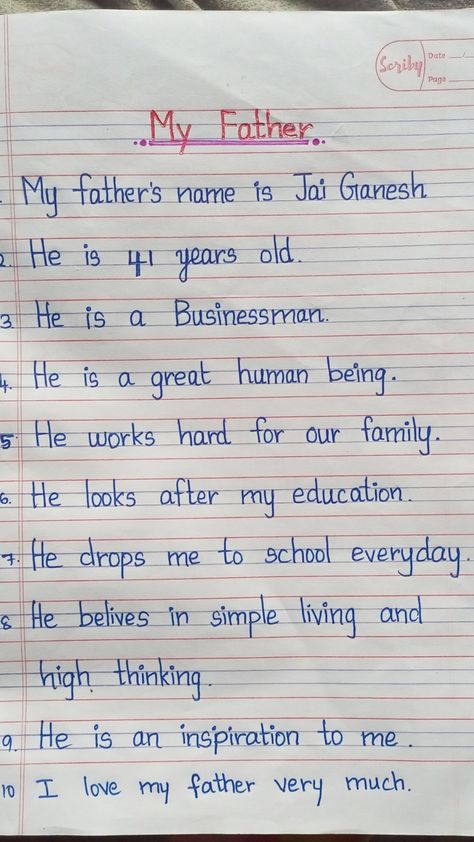 Scriby
Date
Page
My Father
My father's name is Jai Ganesh
2. He is 41 years old.
3. He is a Businessman.
4. He is a great human being.
5. He works hard for our family.
6. He looks after my education.
7. He drops me to school everyday.
8 He belives in simple living and
high thinking.
9. He is an inspiration to me.
10 I love my father very much.